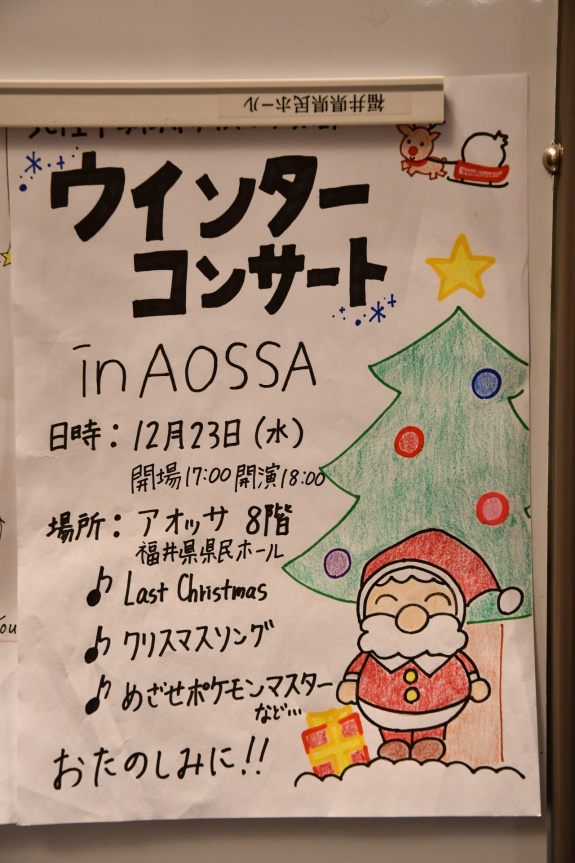 福井県県民ホール
ウインター
コンサート
in AOSSA
日時：12月23日（水）
開場17:00 開演18:00
場所：アオッサ 8階
福井県県民ホール
♪ Last Christmas
♪ クリスマスソング
♪ めざせポケモンマスター
など…
おたのしみに!!
You